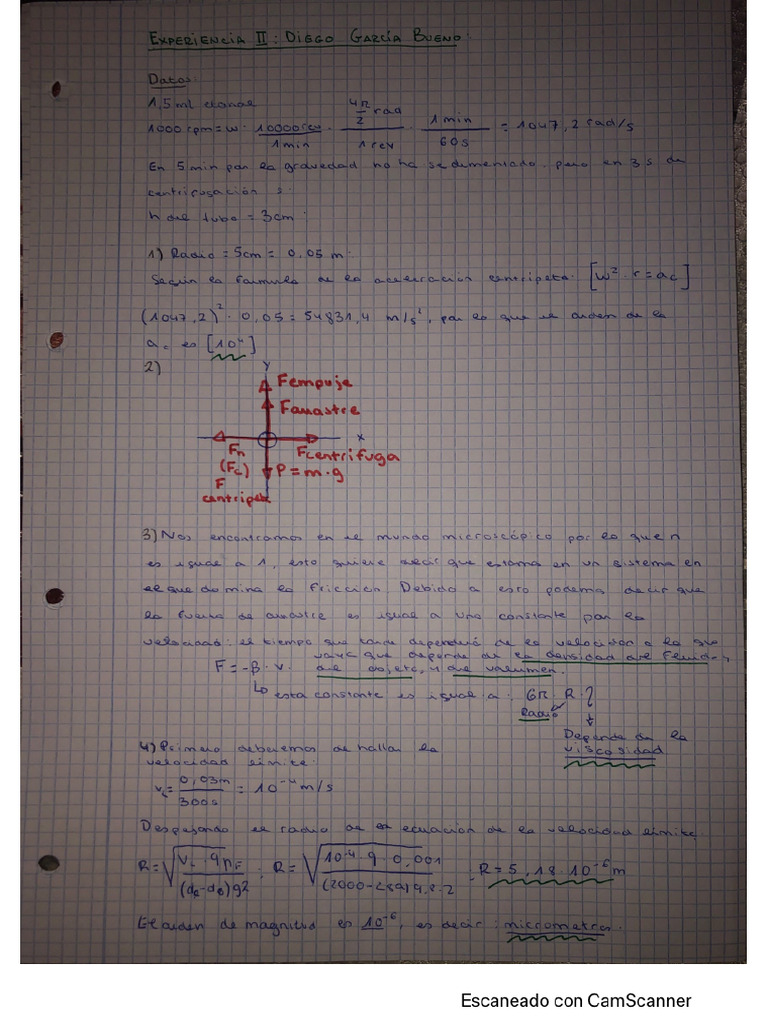 EXPERIENCIA II: DIEGO GARCÍA BUENO.
Datos:
1,5 ml etanol
1000 rpm = w · 10000 rev / 1 min · 4π/2 rad / 1 rev · 1 min / 60 s = 1047,2 rad/s
En 5 min por la gravedad no ha sedimentado, pero en 3 s de
centrifugación sí.
h del tubo = 3cm:
1) Radio = 5cm = 0,05 m:
Según la fórmula de la aceleración centrípeta: [w² · r = ac]
(1047,2)² · 0,05 = 54831,4 m/s², por lo que el orden de la
ac es [10⁴]
2)
y
Fempuje
Farrastre
x
Fn
(Fc)
F
centrípeta
Fcentrífuga
P = m · g
3) Nos encontramos en el mundo microscópico por lo que n
es igual a 1, esto quiere decir que estamos en un sistema en
el que domina la fricción. Debido a esto podemos decir que
la fuerza de arrastre es igual a una constante por la
velocidad: el tiempo que tarde dependerá de la velocidad a la que
vaya que depende de la densidad del fluido y
F = -β · v. del objeto, y del volumen.
Lo esta constante es igual a: 6π · R · η
Radio
Depende de la
viscosidad
4) Primero deberemos de hallar la
velocidad límite:
vL = 0,03m / 300s = 10⁻⁴ m/s
Despejando el radio de la ecuación de la velocidad límite
R = √(vL · 9 ρF / (de-df)g2) ; R = √(10⁻⁴ · 9 · 0,001 / (2000-789)9,8·2) ; R = 5,18 · 10⁻⁶ m
El orden de magnitud es 10⁻⁶, es decir: micrometros.
Escaneado con CamScanner